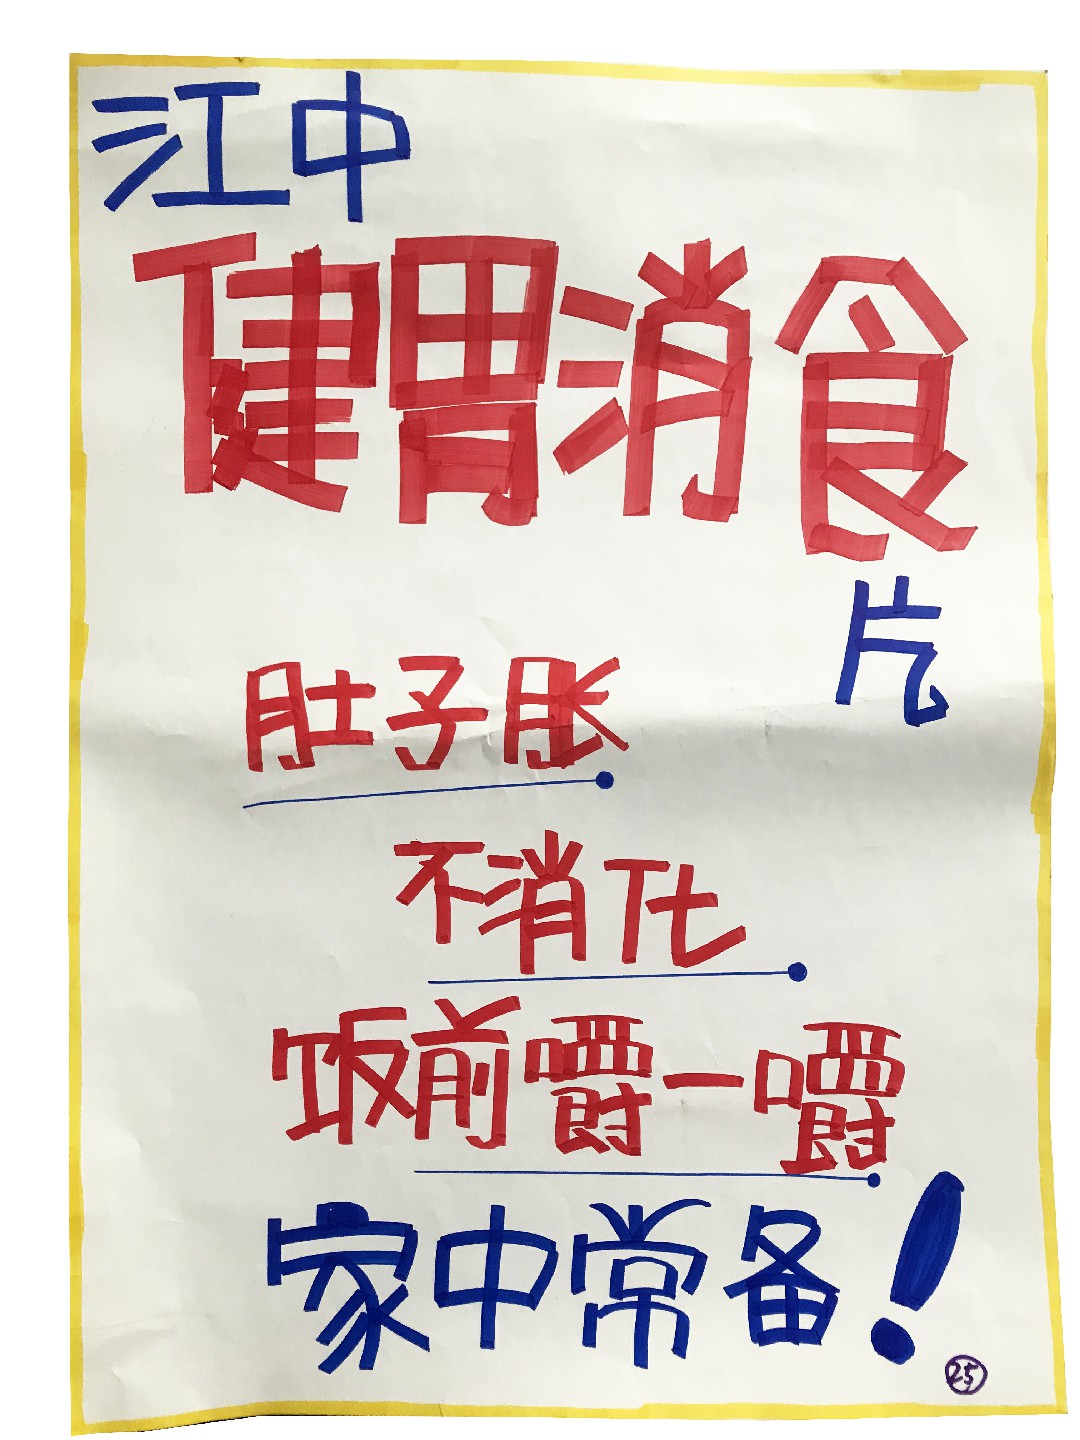 江中
健胃消食
片
肚子胀
不消化
饭前嚼一嚼
家中常备！
25